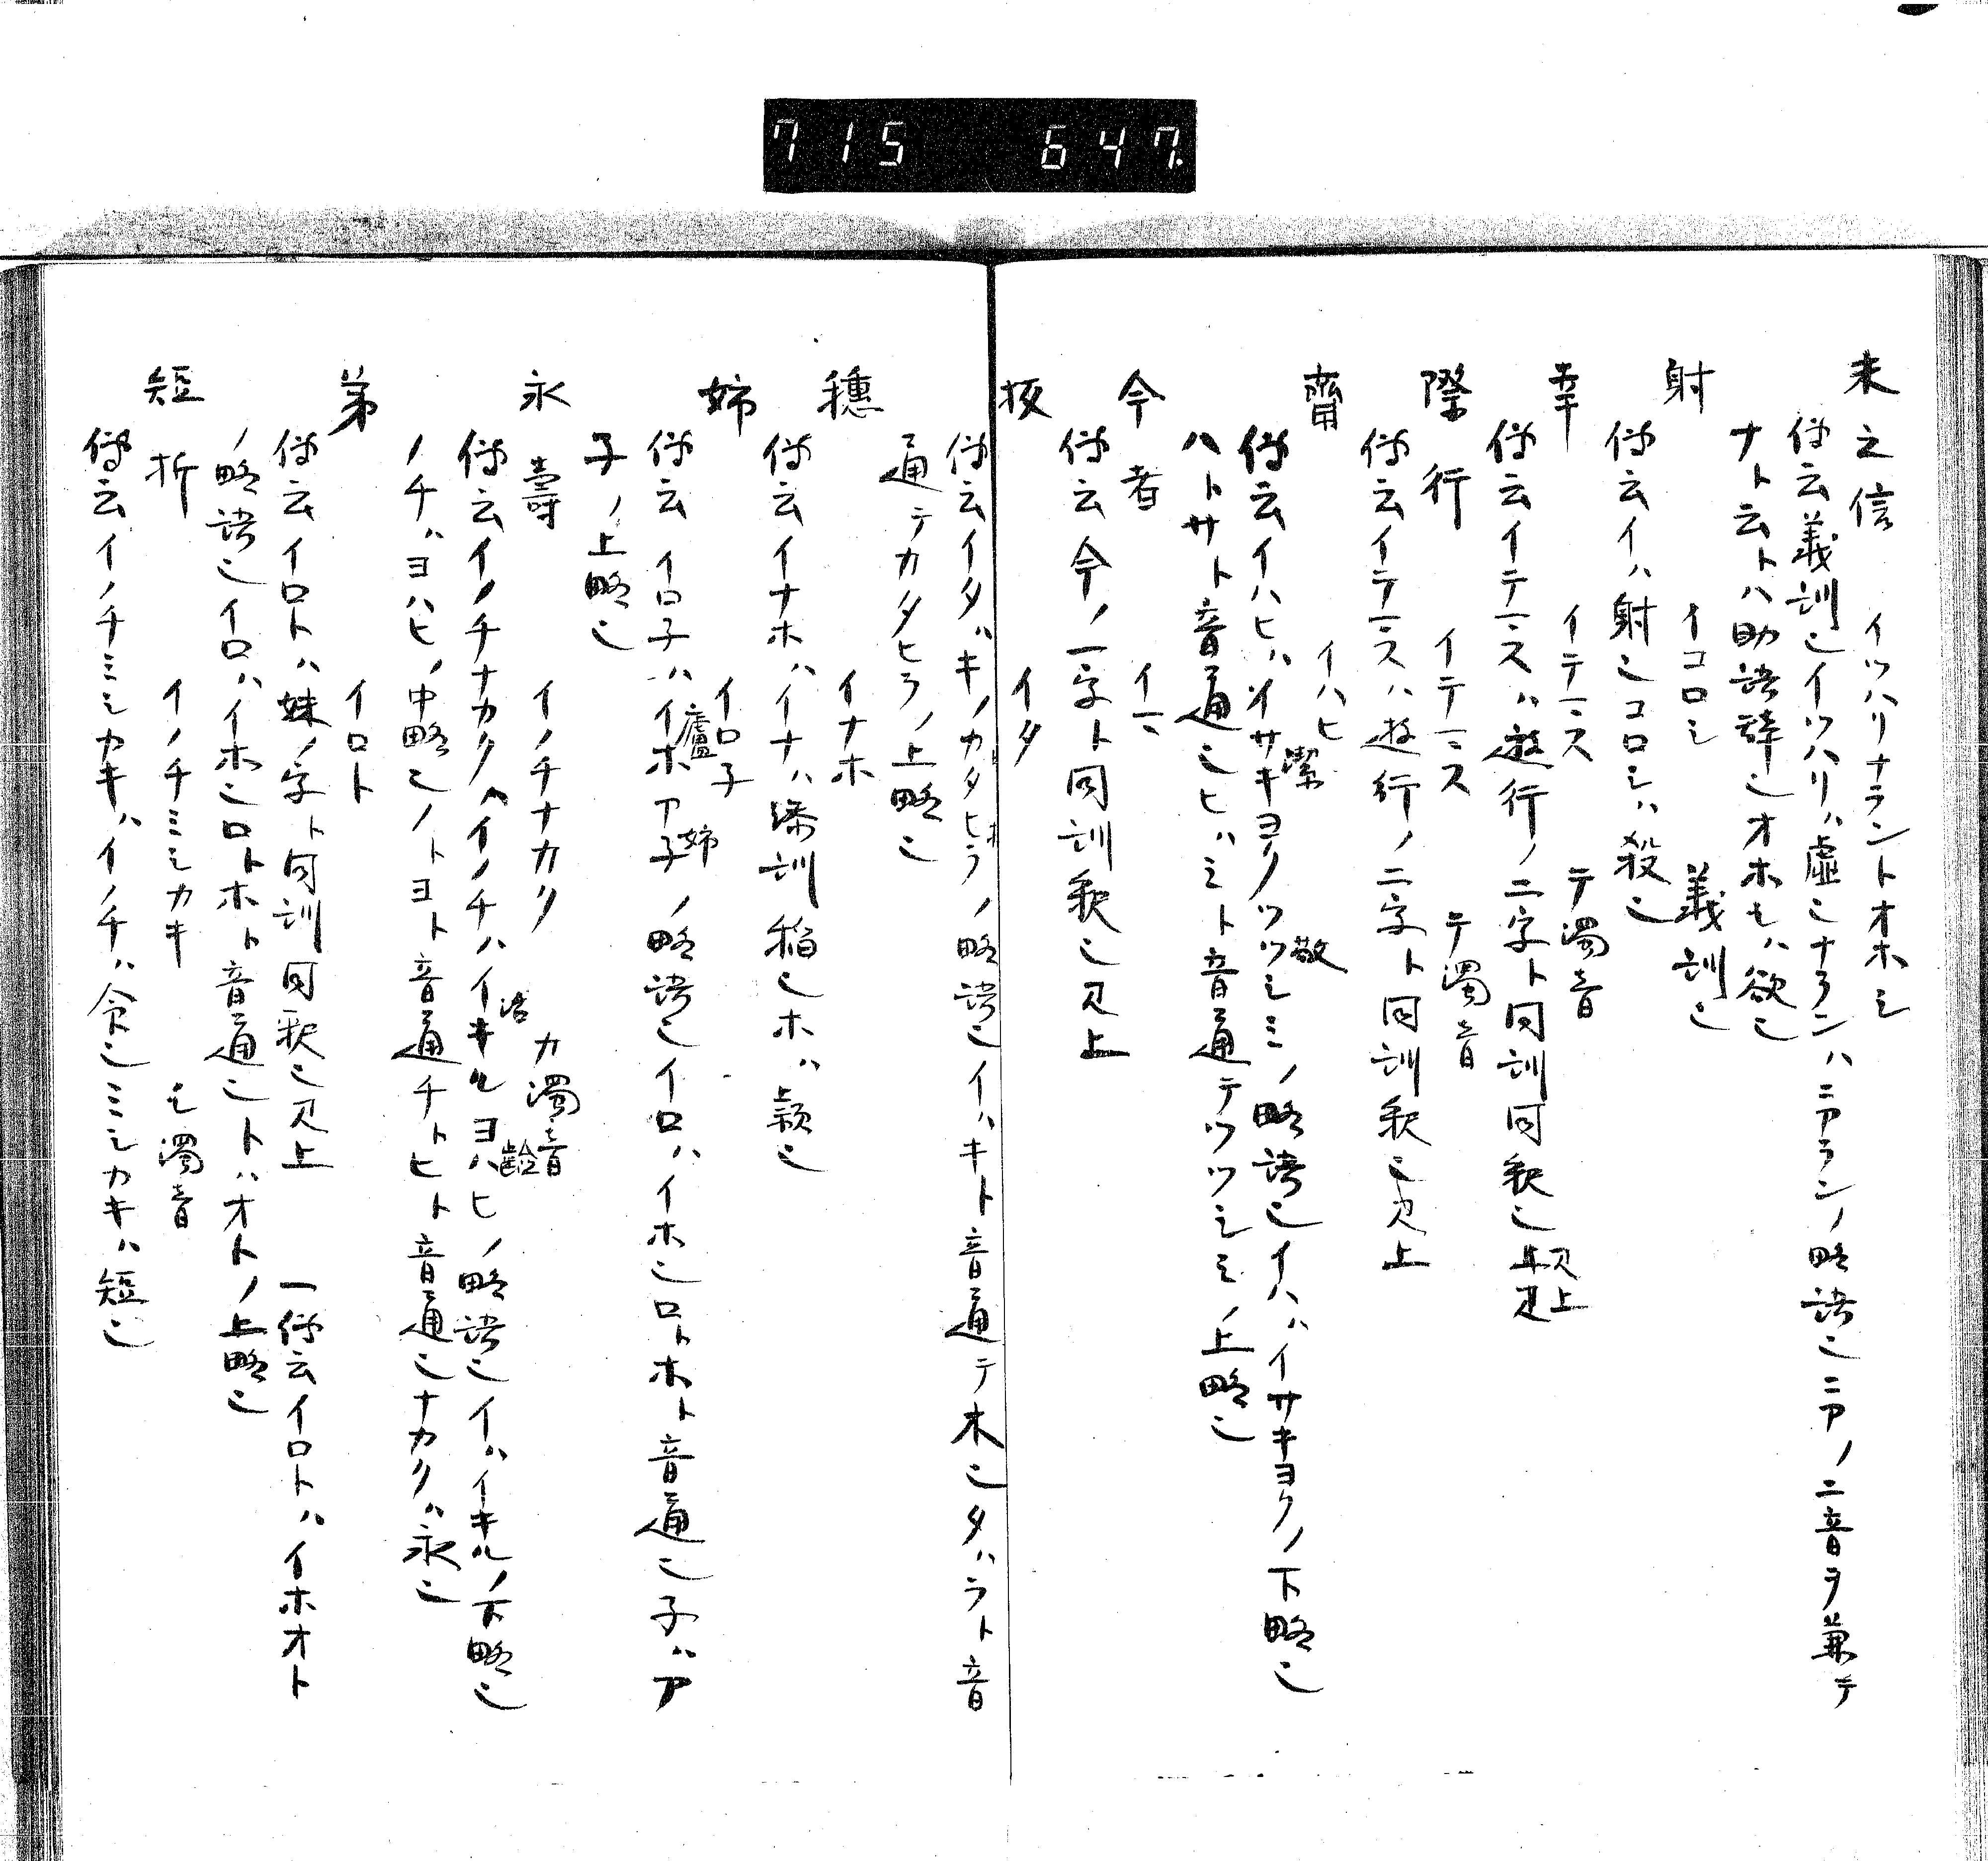 715 647.
未之信 イツハリナラントオホシ
伝云義訓也イツハリハ虚也ナランハニアランノ略語也ニアノ二音ヲ兼テ
ナト云トハ助語辞也オホモハ欲也
射 イコロシ 義訓也
伝云イハ射也コロシハ殺也
幸 イテマス テ濁音
伝云イテマスハ遊行ノ二字ト同訓同釈也 見上
際行 イテマス テ濁音
伝云イテマスハ遊行ノ二字ト同訓釈也見上
齋 イハヒ
伝云イハヒハイサキヨクツツシミノ略語也イハハイサキヨクノ下略也
潔 敬
ハトサト音通也ヒハミト音通テツツシミノ上略也
今者 イマ
伝云今ノ一字ト同訓釈也見上
板 イタ
伝云イタハキノカタヒラノ略語也イハキト音通テ木也タハラト音
通テカタヒラノ上略也
穂 イナホ
伝云イナホハイナハ添訓稲也ホハ穎也
姉 イロ子
伝云イロ子ハイホア子ノ略語也イロハイホ也ロトホト音通也子ハア
廬 姉
子ノ上略也
永壽 イノチナカク カ濁音
伝云イノチナカクハイノチハイキルヨハヒノ略語也イハイキルノ下略也
活 齢
ノチハヨハヒノ中略也ノトヨト音通チトヒト音通也ナカクハ永也
弟 イロト
伝云イロトハ妹ノ字ト同訓同釈也見上 一伝云イロトハイホオト
ノ略語也イロハイホ也ロトホト音通也トハオトノ上略也
短折 イノチミシカキ シ濁音
伝云イノチミシカキハイノチハ命也ミシカキハ短也